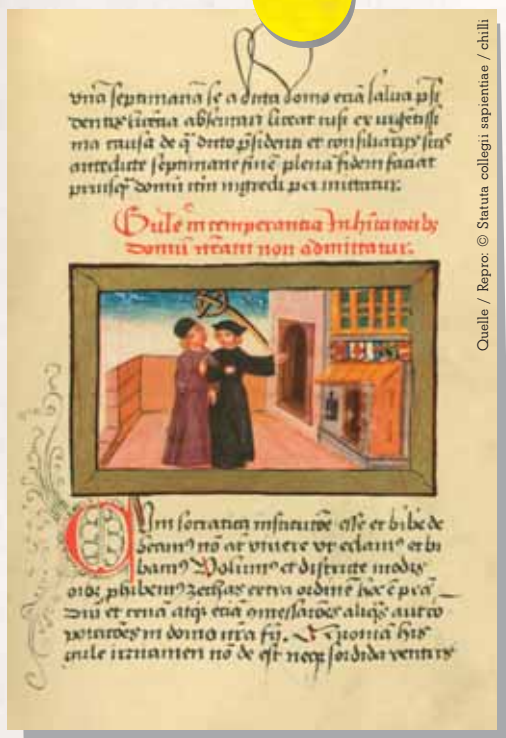 vnā septimanā se a dicta domo etiā salua p̄si
dentis licentia absentari liceat nisi ex urgetissi
ma causa de q̄ dicto p̄sidenti et consiliarijs sūis
antedicte septimane fine plenā fidem faciat
priusq̄ domū ingredi permittatur.
Gule intemperantia Inhītatorib9
domū nr̄am non admittatur.
Um socraticū esse et bibe de
beam9 nō at viuere vt edam9 et bi
bam9 Volum9 et districte
phibem9 zechas extra ordinē hoc ē prā
diū et cenā atq̄ etiā aliq̄s aut co
potatōes in domo nr̄a fīj. Quoniā his
gule non de est neq̄ sordida ventris
Quelle / Repro: © Statuta collegii sapientiae / chilli